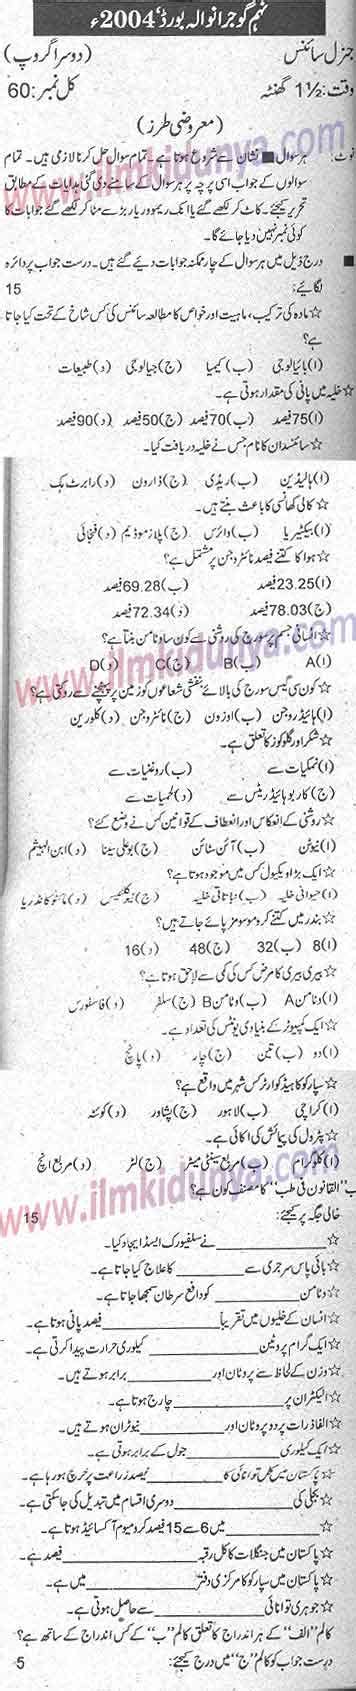 نہم گوجرانوالہ بورڈ، 2004ء
جنرل سائنس (دوسرا گروپ)
وقت: 1½ گھنٹہ کل نمبر: 60
(معروضی طرز)
نوٹ: ہر سوال ■ نشان سے شروع ہوتا ہے۔ تمام سوال حل کرنا لازمی ہیں۔ تمام
سوالوں کے جواب اسی پرچہ پر ہر سوال کے سامنے دی گئی ہدایات کے مطابق
تحریر کیجئے۔ کاٹ کر لکھے گئے یا انک ریموور یا ربڑ سے مٹا کر لکھے گئے جوابات کا
کوئی نمبر نہیں دیا جائے گا۔
■ درج ذیل میں ہر سوال کے چار ممکنہ جوابات دیئے گئے ہیں۔ درست جواب پر دائرہ
لگائیے: 15
☆ مادہ کی ترکیب، ماہیت اور خواص کا مطالعہ سائنس کی کس شاخ کے تحت کیا جاتا
ہے؟
(ا) بائیالوجی (ب) کیمیا (ج) جیالوجی (د) طبیعات
☆ خلیہ میں پانی کی مقدار ہوتی ہے۔
(ا) 75 فیصد (ب) 70 فیصد (ج) 50 فیصد (د) 90 فیصد
☆ سائنسدان کا نام جس نے خلیہ دریافت کیا۔
(ا) ہالیڈین (ب) ریڈی (ج) ڈارون (د) رابرٹ ہک
☆ کالی کھانسی کا باعث بنتے ہیں۔
(ا) بیکٹیریا (ب) وائرس (ج) پلازموڈیم (د) فنجائی
☆ ہوا کا کتنے فیصد نائٹروجن پر مشتمل ہے؟
(ا) 23.25 فیصد (ب) 69.28 فیصد
(ج) 78.03 فیصد (د) 72.34 فیصد
☆ انسانی جسم پر سورج کی روشنی سے کون سا وٹامن بنتا ہے؟
(ا) A (ب) B (ج) C (د) D
☆ کون سی گیس سورج کی بالائے بنفشی شعاعوں کو زمین پر پہنچنے سے روکتی ہے؟
(ا) ہائیڈروجن (ب) اوزون (ج) نائٹروجن (د) کلورین
☆ شکر اور گلوکوز کا تعلق ہے۔
(ا) نمکیات سے (ب) روغنیات سے
(ج) کاربوہائیڈریٹس سے (د) لحمیات سے
☆ روشنی کے انعکاس اور انعطاف کے قوانین کس نے وضع کئے؟
(ا) نیوٹن (ب) آئن سٹائن (ج) بوعلی سینا (د) ابن الہیثم
☆ ایک بڑا ویکیول کس میں موجود ہوتا ہے؟
(ا) حیوانی خلیہ (ب) نباتاتی خلیہ (ج) نیوکلیئس (د) مائٹوکانڈریا
☆ بندر میں کتنے کروموسومز پائے جاتے ہیں؟
(ا) 8 (ب) 32 (ج) 48 (د) 16
☆ بیری بیری کا مرض کس کی کمی سے لاحق ہوتا ہے؟
(ا) وٹامن A (ب) وٹامن B (ج) سلفر (د) فاسفورس
☆ ایک کمپیوٹر کے بنیادی یونٹس کی تعداد ہے۔
(ا) دو (ب) تین (ج) چار (د) پانچ
☆ سپارکو کا ہیڈ کوارٹرز کس شہر میں واقع ہے؟
(ا) کراچی (ب) لاہور (ج) پشاور (د) کوئٹہ
☆ پٹرول کی پیمائش کی اکائی ہے۔
(ا) کلوگرام (ب) مربع سینٹی میٹر (ج) لٹر (د) مربع انچ
ب "القانون فی طب" کا مصنف کون ہے؟
خالی جگہ پر کیجئے: 15
☆ ________ نے سلفیورک ایسڈ ایجاد کیا۔
☆ بائی پاس سرجری سے ________ کا علاج کیا جاتا ہے۔
☆ وٹامن ________ کو دافع سرطان سمجھا جاتا ہے۔
☆ انسان کے خلیوں میں تقریباً ________ فیصد پانی ہوتا ہے۔
☆ ایک گرام پروٹین ________ کیلوری حرارت پیدا کرتی ہے۔
☆ وزن کے لحاظ سے پروٹان اور ________ برابر ہوتے ہیں۔
☆ الیکٹران پر ________ چارج ہوتا ہے۔
☆ الفا ذرات پر دو پروٹان اور ________ نیوٹران ہوتے ہیں۔
☆ ایک کیلوری ________ جول کے برابر ہوتی ہے۔
☆ پاکستان میں کل توانائی کا ________ فیصد زراعت پر خرچ ہو رہا ہے۔
☆ بجلی کی ________ دوسری اقسام میں تبدیل کی جا سکتی ہے۔
☆ ________ میں 6 سے 15 فیصد کرومیم آکسائیڈ ہوتا ہے۔
☆ پاکستان میں جنگلات کا کل رقبہ ________ فیصد ہے۔
☆ پاکستان میں سپارکو کا مرکزی دفتر ________ میں ہے۔
☆ جوہری توانائی ________ سے حاصل ہوتی ہے۔
کالم "الف" کے ہر اندراج کا تعلق کالم "ب" کے کس اندراج کے ساتھ ہے؟
درست جواب کو کالم "ج" میں درج کیجئے: 5
www.ilmkidunya.com
www.ilmkidunya.com
www.ilmkidunya.com